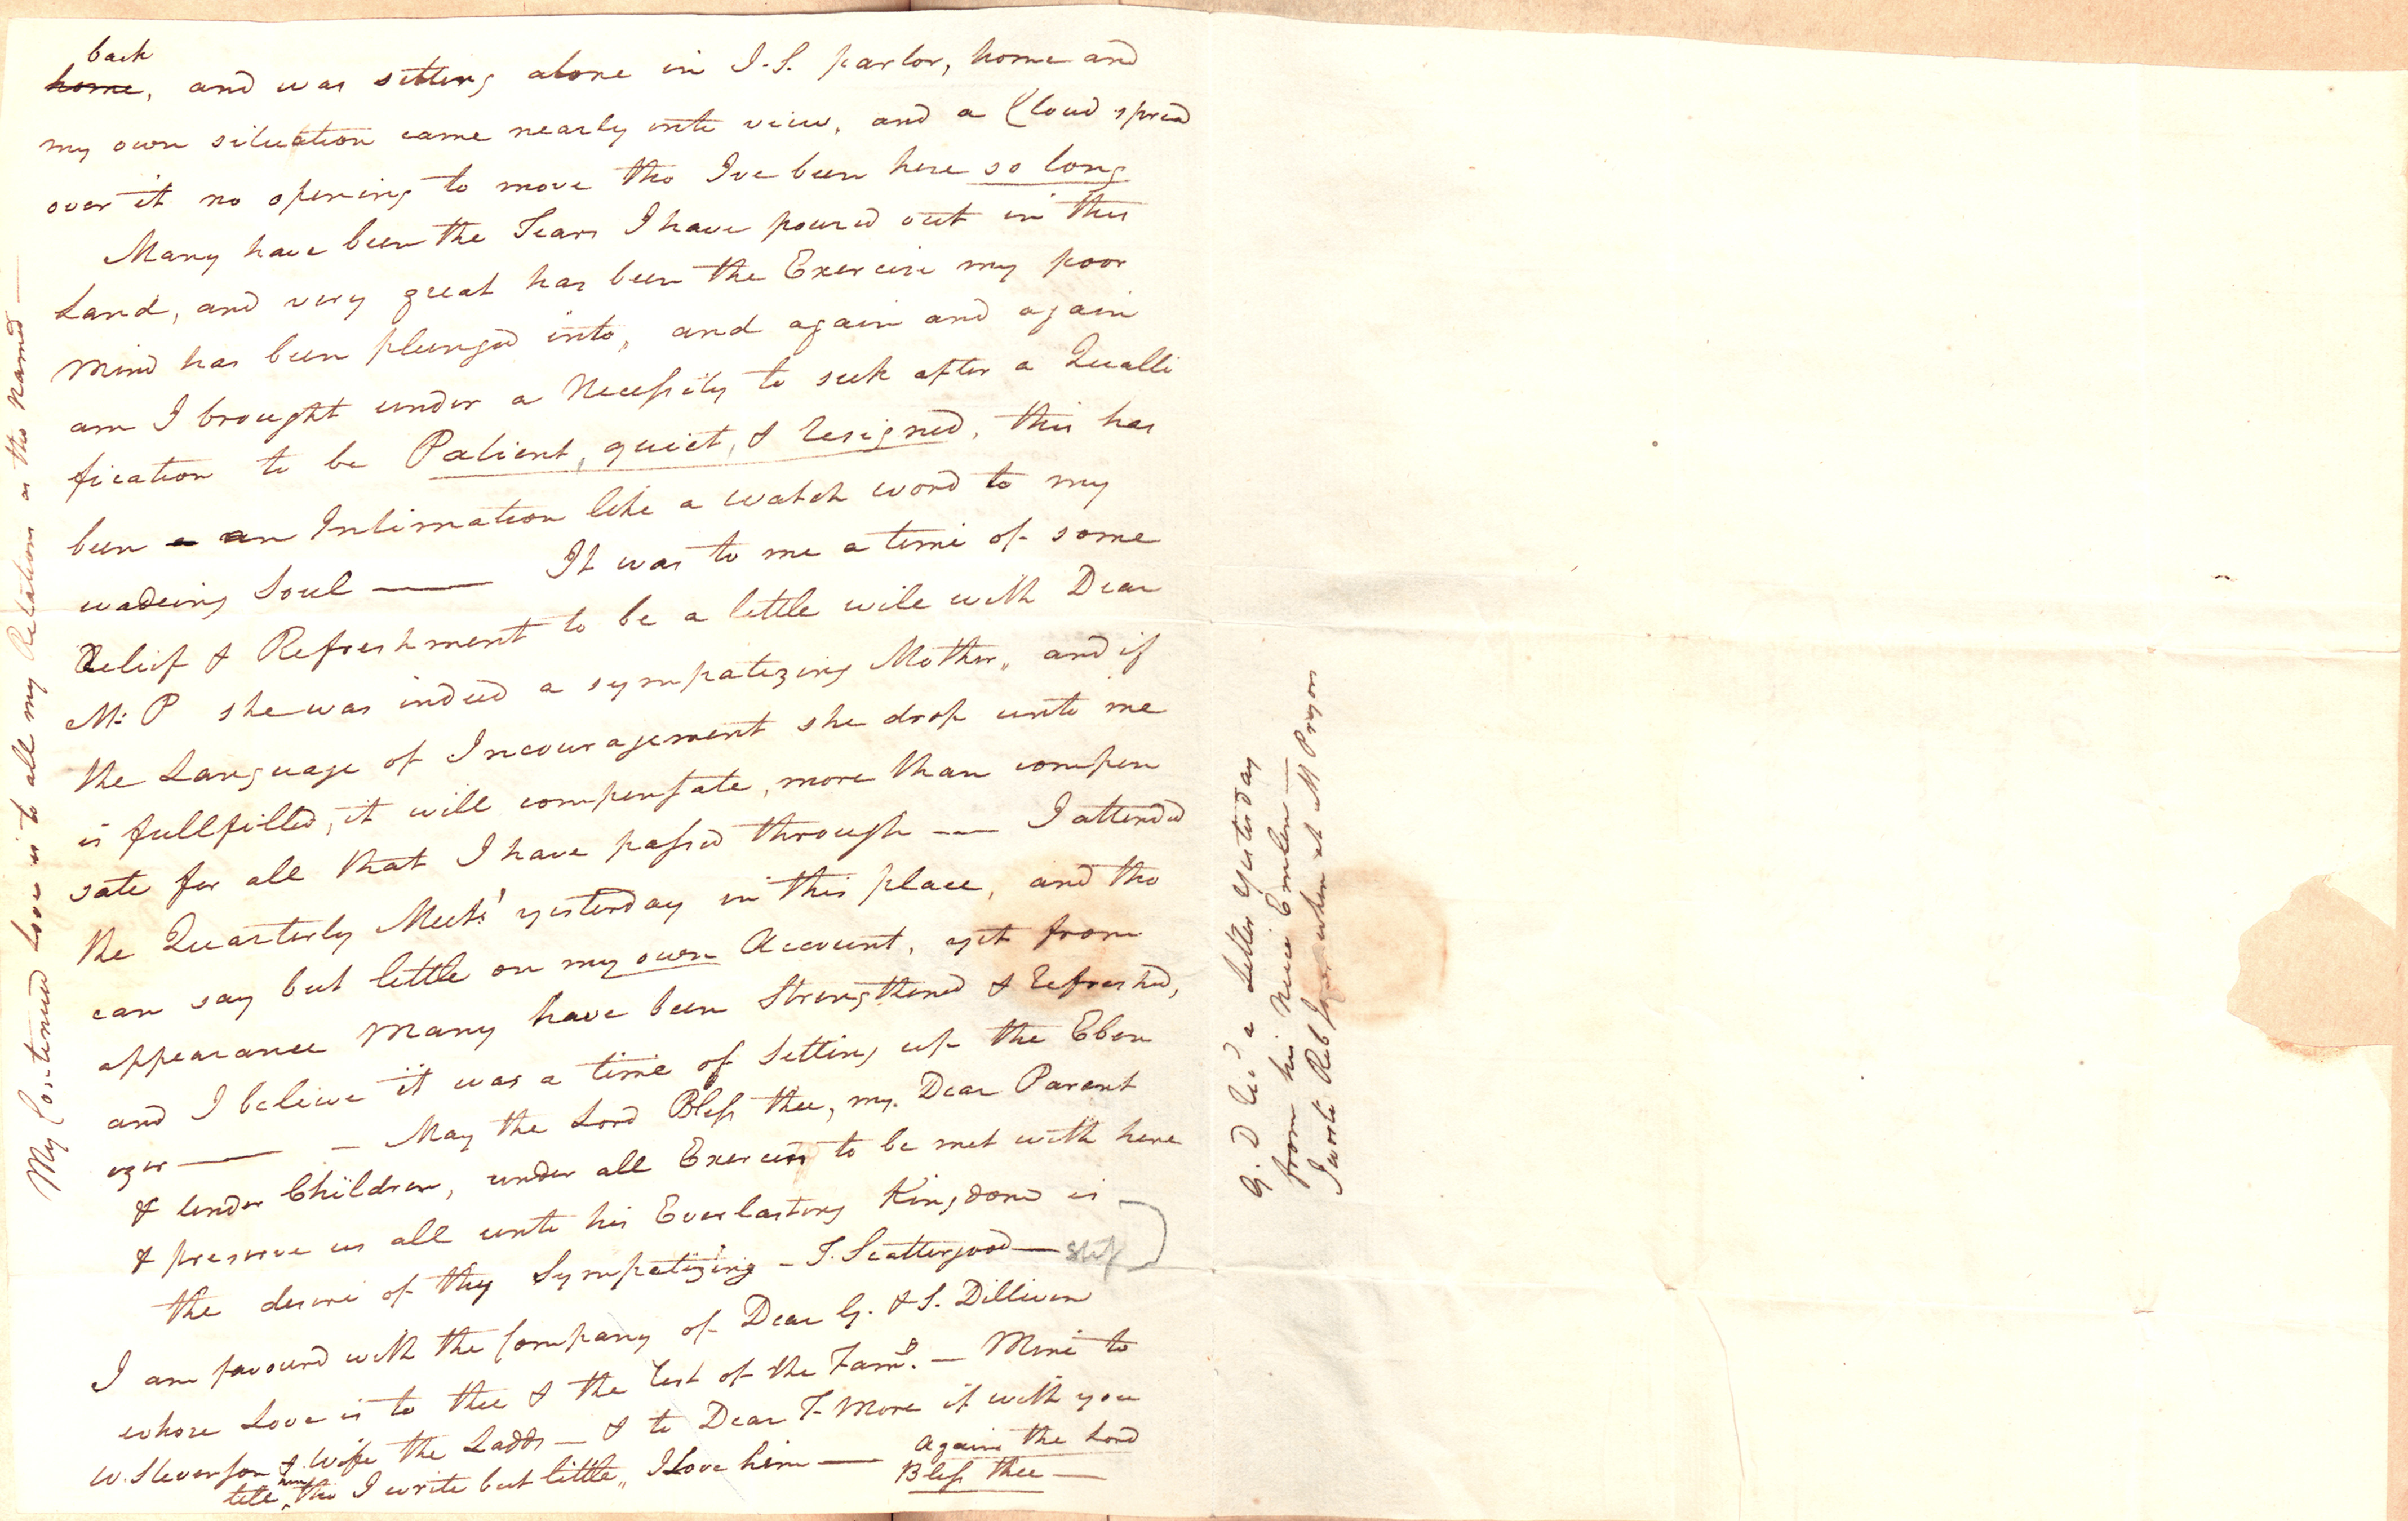 back
home, and was sitting alone in J.S. parlor, home and
my own situation came nearly into view, and a Cloud spread
over it no opening to move tho Ive been here so long
Many have been the Tears I have poured out in this
Land, and very great has been the Exercise my poor
Mind has been plunged into, and again and again
am I brought under a Necessity to seek after a Qualli
fication to be Patient, quiet, & resigned, this has
been a an Intimation like a watch word to my
wadeing Soul —— It was to me a time of some
Relief & Refreshment to be a little wile with Dear
M: P she was indeed a sympatezing Mother, and if
the Language of Incouragement she drop unto me
is fullfilled, it will compensate, more than compen
sate for all that I have passed through —— I attended
the Quarterly Meetg yesterday in this place, and tho
can say but little on my own Account, yet from
appearance Many have been Strengthened & refreshed,
and I believe it was a time of setting up the Eben
ezer —— — May the Lord Bless thee, my Dear Parent
& tender Children, under all Exercises to be met with here
& preserve us all unto his Everlasting Kingdom is
the desire of thy Sympatizing – T. Scattergood —
I am favourd with the Company of Dear G. & S. Dillwin
whose Love is to thee & the rest of the Famy. — Mine to
W. Slevenson & Wife the Ladds — & to Dear T- More if with you
tell him tho I write but little, I Love him —— Again the Lord
Bless thee —
My Continued Love is to all my Relations as tho Named —
G. D recd a Letter Yesterday
from his Niece Emlen —
I wrote Reb Jones when at M Pryors